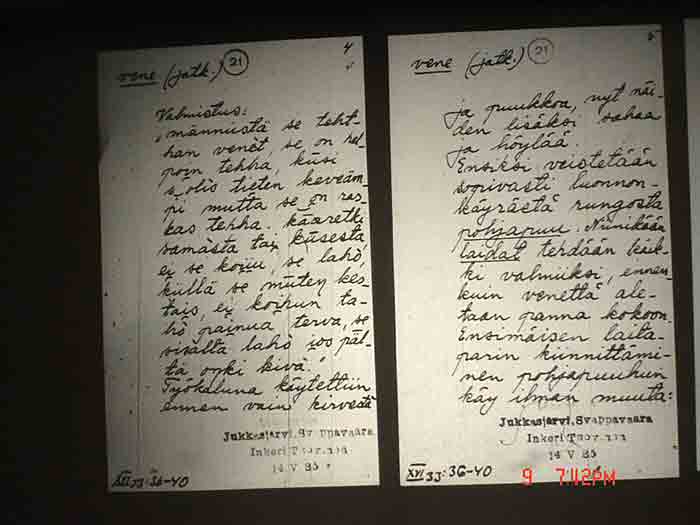 vene (jatk.) 21
4
Valmistus:
"männüstä se teht-
han venèt, se on hel-
poin tehhä, küsi
s olis tieten keveäm-
pi mutta se on ras-
kas tehhä. kääretki
samasta tai küsestä,
ei se koiju, se lahò,
küllä se müten kes-
täis, ei koihun ta-
hò painua terva, se
sisältä lahò jos päl-
tä onki hüvä."
Työkaluna käytettiin
ennen vain kirvestä
Jukkasjärvi, Svappavaara
Inkeri
14 V 35
XVI 33:36-40
vene (jatk.) 21
5
ja puukkoa, nyt näi-
den lisäksi sahaa
ja höylää.
Ensiksi veistetään
sopivasti luonnon-
käyrästä rungosta
pohjapuu. Niinikään
laidat tehdään kaik-
ki valmiiksi, ennen-
kuin venettä ale-
taan panna kokoon.
Ensimäisen laita-
parin kiinnittämi-
nen pohjapuuhun
käy ilman muuta:
Jukkasjärvi, Svappavaara
Inkeri
14 V 35
XVI 33:36-40
9 7:12PM